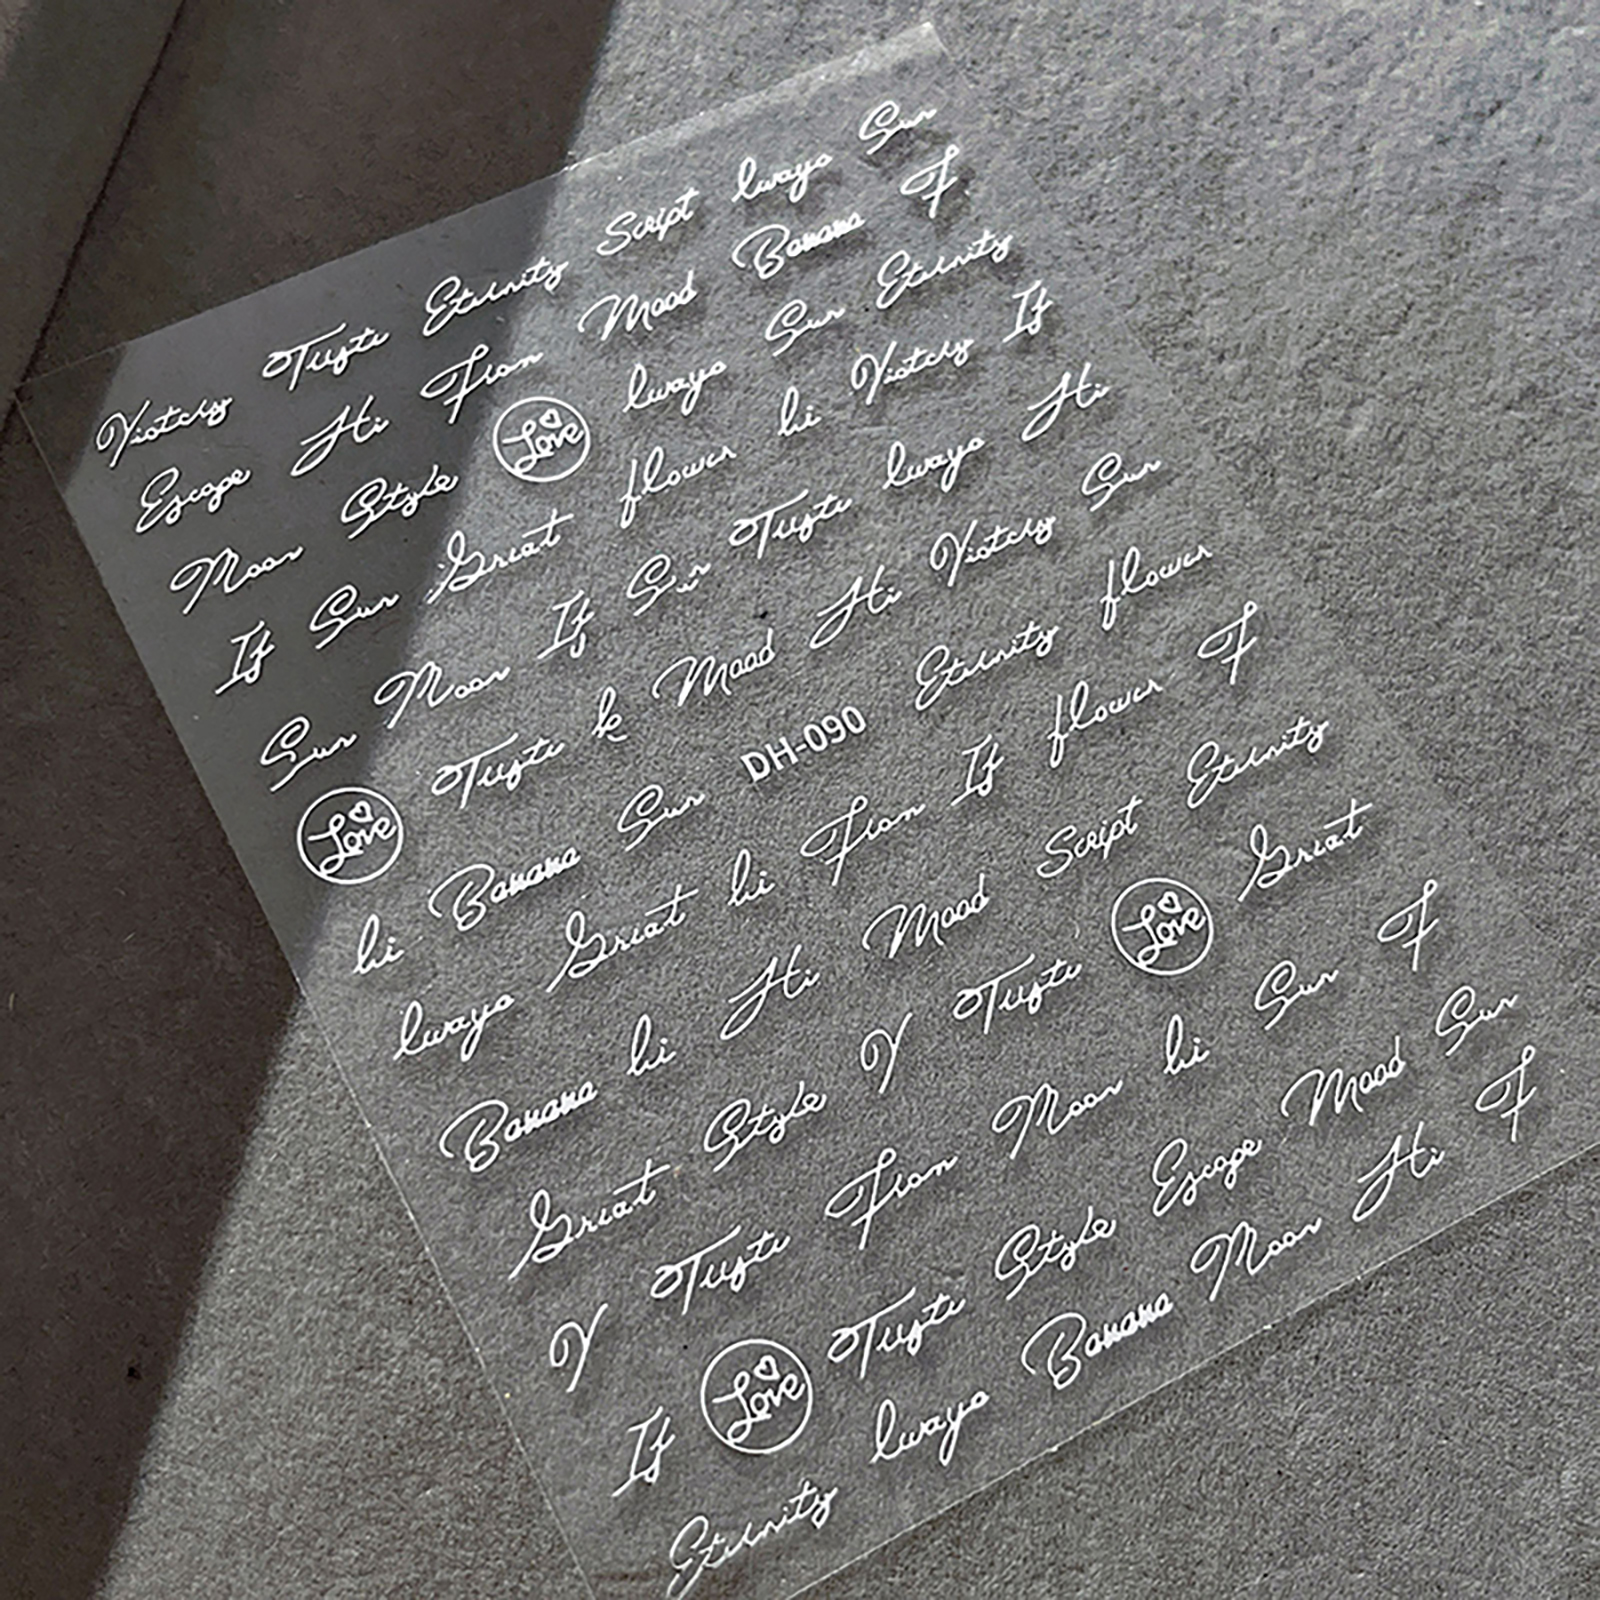 Victory Tuste Eternity Script lways Sun
Escape Hi From Mood Banana F
Moon Style Love lways Sun Eternity
If Sun Great flower hi Victory If
Sun Moon If Sun Tuste lways Hi
Love Tuste k Mood Hi Victory Sun
hi Banana Sun DH-090 Eternity flower
lways Great hi From If flower F
Banana hi Hi Mood Script Eternity
Great Style Y Tuste Love Great
Y Tuste From Moon hi Sun F
If Love Tuste Style Escape Mood Sun
Eternity lways Banana Moon Hi F